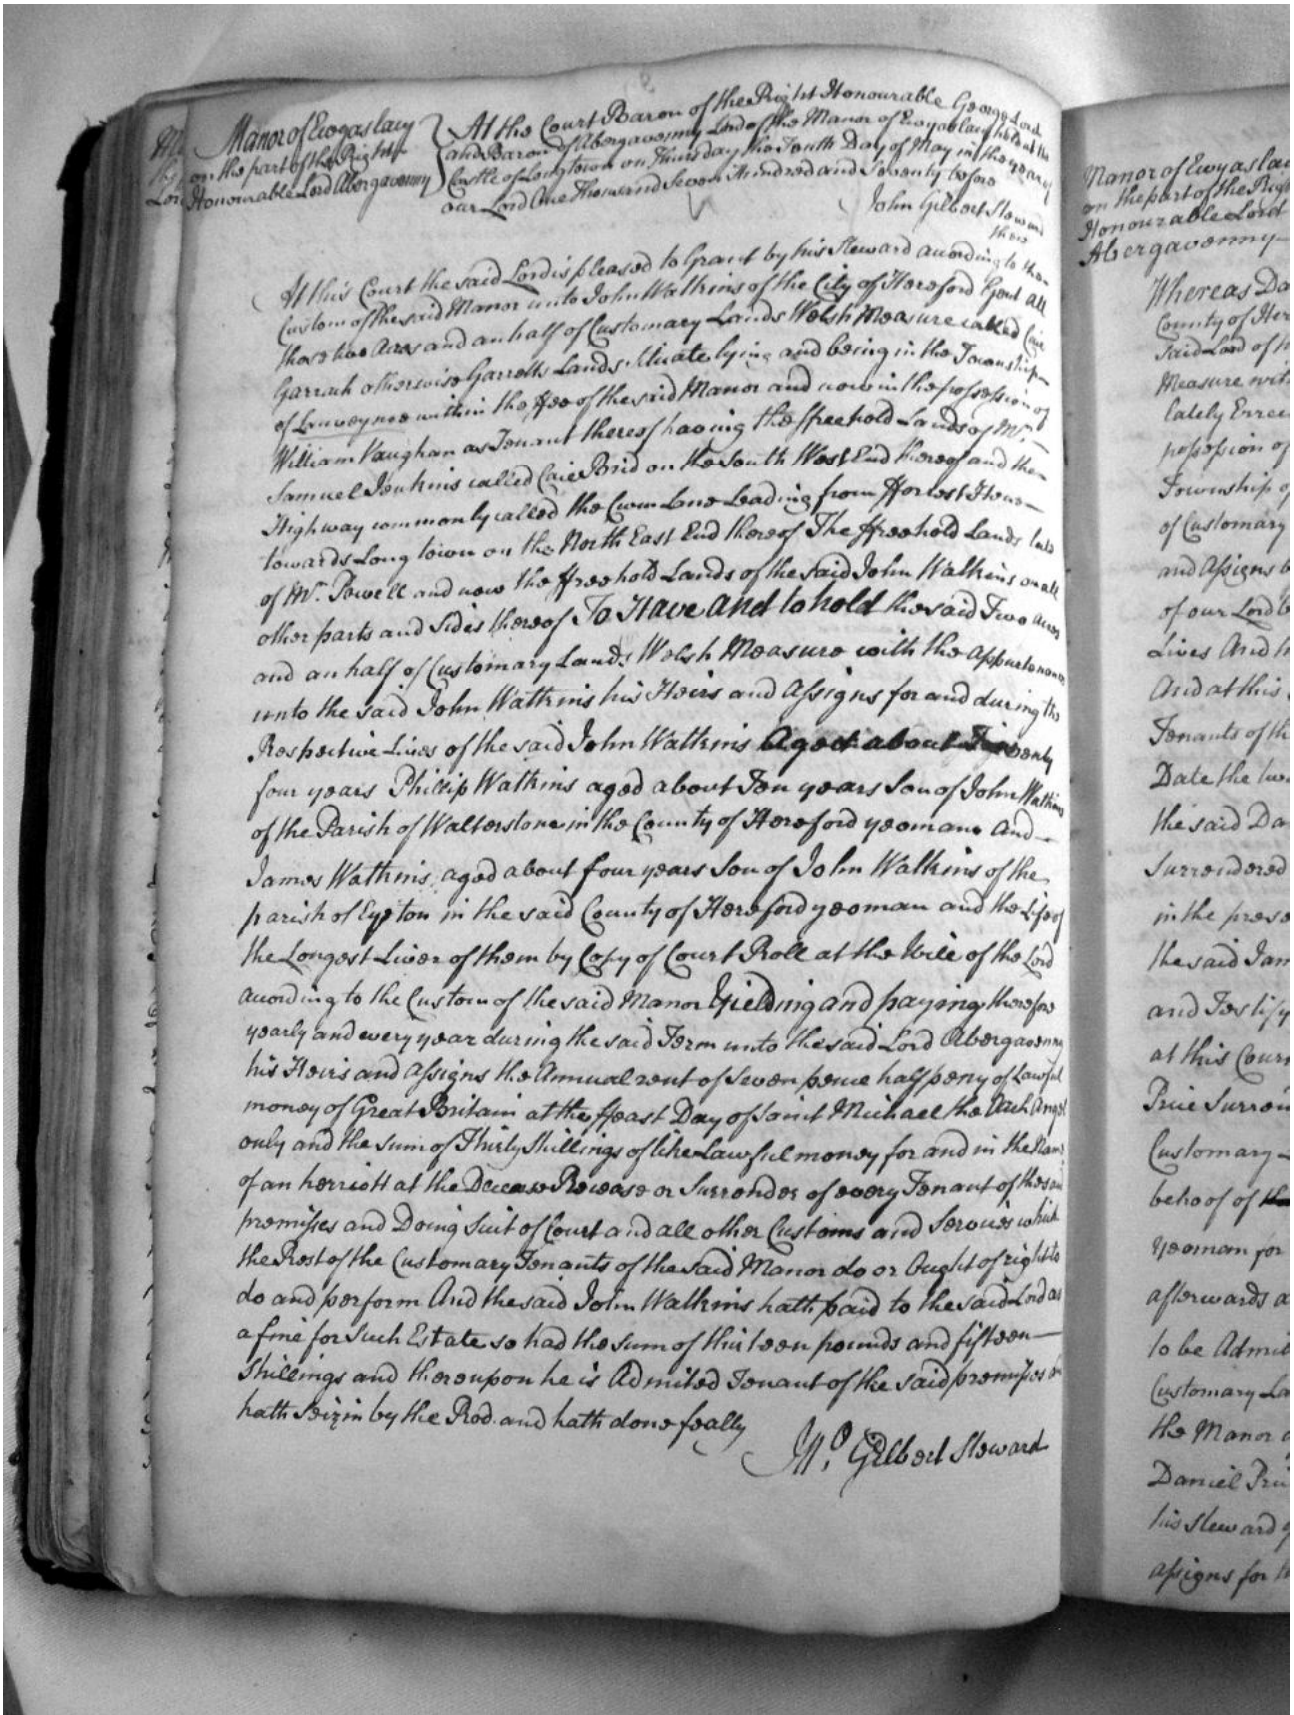 Manor of Ewyas lacy
on the part of the Right
Honourable Lord Abergavenny
At the Court Baron of the Right Honourable George Lord
and Baron of Abergavenny Lord of the Manor of Ewyas lacy held at the
Castle of Longtown on Thursday the Tenth Day of May in the year of
our Lord One Thousand Seven Hundred and Seventy before
John Gilbert Steward
there
At this Court the said Lord is pleased to Grant by his Steward according to the
Custom of the said Manor unto John Watkins of the City of Hereford Gent All
those two Acres and an half of Customary Lands Welsh Measure called Cair
Garrah otherwise Garretts Lands Situate lying and being in the Township
of Lanveynoe within the ffee of the said Manor and now in the possession of
William Vaughan as Tenant thereof having the ffreehold Lands of Mr.
Samuel Jenkins called Caie Brid on the South West End thereof and the
Highway commonly called the Cwm Lane Leading from fforest Hene
towards Long town on the North East End thereof The ffreehold Lands late
of Mr. Powell and now the ffreehold Lands of the said John Watkins on all
other parts and sides thereof To Have And to hold the said Two Acres
and an half of Customary Lands Welsh Measure with the appurtenances
unto the said John Watkins his Heirs and Assigns for and during the
Respective Lives of the said John Watkins Aged about Twenty
four years Phillip Watkins aged about Ten years Son of John Watkins
of the Parish of Walterstone in the County of Hereford yeoman And
James Watkins aged about four years Son of John Watkins of the
parish of Eyton in the said County of Hereford yeoman and the Life of
the Longest Liver of them by Copy of Court Roll at the Will of the Lord
according to the Custom of the said Manor Yielding and paying therefore
yearly and every year during the said Term unto the said Lord Abergavenny
his Heirs and Assigns the Annual rent of Seven pence half peny of Lawful
money of Great Britain at the ffeast Day of Saint Michael the Arch Angel
only and the sum of Thirty Shillings of like Lawful money for and in the Name
of an herriott at the Decease Release or Surrender of every Tenant of the said
premisses and Doing Suit of Court and all other Customs and Services which
the Rest of the Customary Tenants of the said Manor do or Ought of right to
do and perform And the said John Watkins hath paid to the said Lord as
a fine for Such Estate so had the sum of thirteen pounds and fifteen
Shillings and thereupon he is Admited Tenant of the said premisses
hath Seizin by the Rod and hath done fealty
Jno. Gilbert Steward
Manor of Ewyas lac
on the part of the Righ
Honourable Lord
Abergavenny
Whereas Da
County of Her
Said Lord of
Measure with
lately Erec
possession of
Township o
of Customary
and Assigns
of our Lord
Lives And
And at this
Tenants of th
Date the
the said Da
Surrendered
in the prese
the said Jam
and Testify
at this Court
Price Surren
Customary
behoof of
Yeoman for
afterwards a
to be Admit
Customary La
the Manor
Daniel Pri
his Steward
assigns for